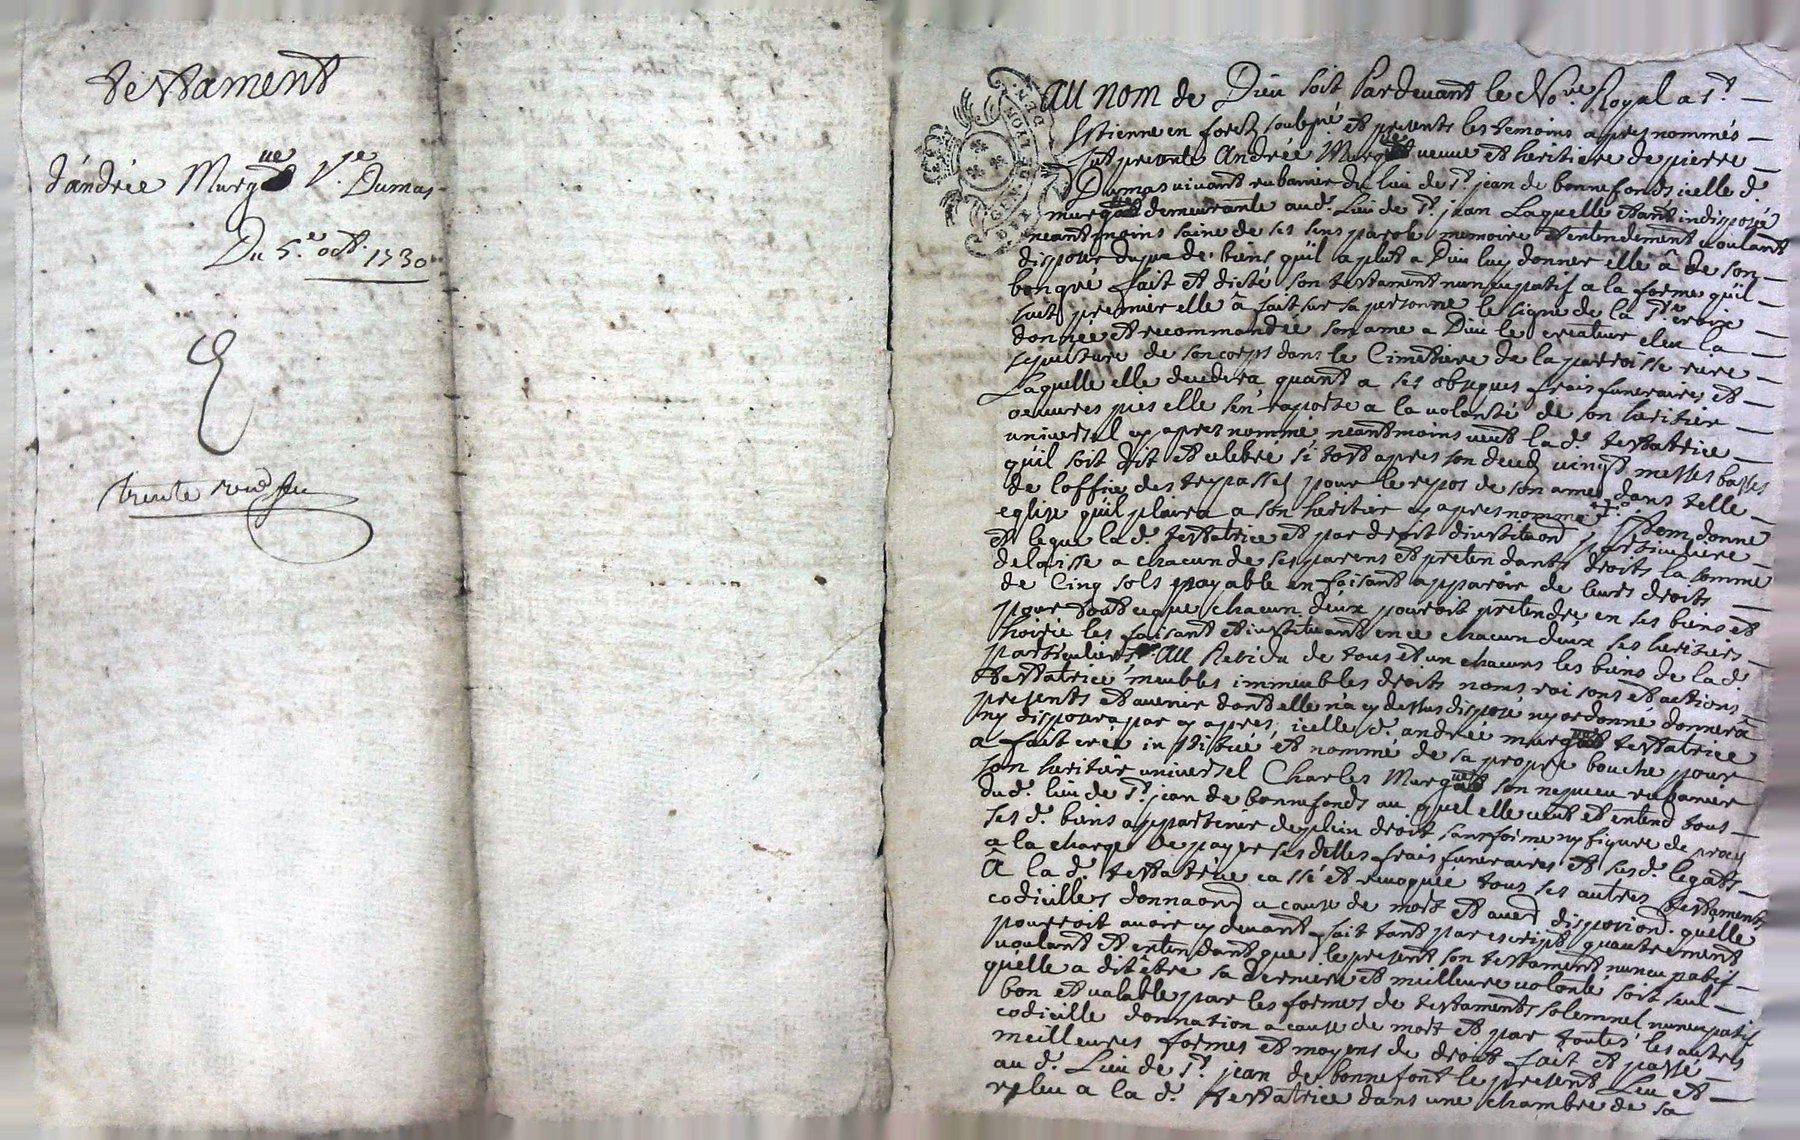 testament
d'andrée Murgue Ve. Dumas
Du 5.e octt. 1730
trente
AU nom de Dieu soit Pardevant le No.re Royal a St.
Estienne en forest soubsné et presents les temoins apres nommés
fut presente Andrée Murgue veuve et heritiere de pierre
Dumas vivant rubanier du lieu de St. jean de bonnefonds icelle d.
murgue demeurante aud. Lieu de St. jean Laquelle etant indisposée
neantmoins saine de ses sens parole memoire et entendement voulant
disposer du peu de biens qu'il a plut a Dieu luy donner elle â de son
bon gré fait et dicté son testament nuncupatif a la forme qu'il
suit premier elle â fait sur sa personne le signe de la Ste croix
donnée et recommandée son ame a Dieu le createur eleu la
sepulture de son corps dans le Cimetiere de la parroisse rure
Laquelle elle decedera quant a ses obseques frais funeraires et
oeuvres pies elle s'en raporte a la volonté de son heritier
universel cy apres nommé neantmoins veut la d. testatrice
qu'il soit dit et celebré si tost apres son deced vingt messes basses
de l'office des trepassés pour le repos de son ame dans telle
eglise qu'il plaira a son heritier cy apres nommé Item donne
et legue la d. testatrice et par droit d'institu̅on particuliere
delaisse a chacun de ses parens et pretendants droits la somme
de Cinq sols payable en faisant apparoir de leurs droits
pour tout ce que chacun d'eux pouroit pretendre en ses biens et
hoirie les faisant et instituant en ce chacun deux ses heritiers
particuliers AU Residu de tous et un chacuns les biens de la d.
testatrice meubles immeubles droits noms raisons et actions
presents et avenir dont elle n'a cy dessus disposé ny ordonné donnera
ny disposera par cy apres, icelle d. andrée murgue testatrice â
a fait créé institué et nommé de sa propre bouche pour
son heritier universel Charles Murgue son nepveu rubanier
du d. lieu de St. jean de bonnefonds au quel elle veut et entend tous
ses d. biens appartenir de plein droit sans forme ny figure de
a la charge de payer ses frais funeraires et sesd. legats
Â la d. testatrice cassé et revoquée tous ses autres testaments
codicilles donnaõn a cause de mort et autres disposiõn qu'elle
pourroit avoir cy devant fait tant par escript qu'autrement
voulant et entendant que le present son testament nuncupatif
qu'elle a dit être sa derniere et meilleure volonté soit seul
bon et valable par les formes de testaments solemnel nuncupatif
codicille donnation a cause de mort et par toutes les autres
meilleures formes et moyens de droit fait et passé
au d. Lieu de St. jean de bonnefont le present Leu et
releu a la d. testatrice dans une chambre de sa